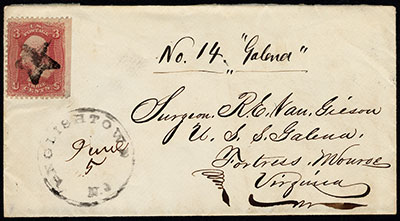 3 3
CENTS
No. 14. "Galena"
Surgeon R. E. Van. Gieson
U. S. S. Galena.
Fortress, Monroe
Virginia
ENGLISHTOWN
N.J
June
5